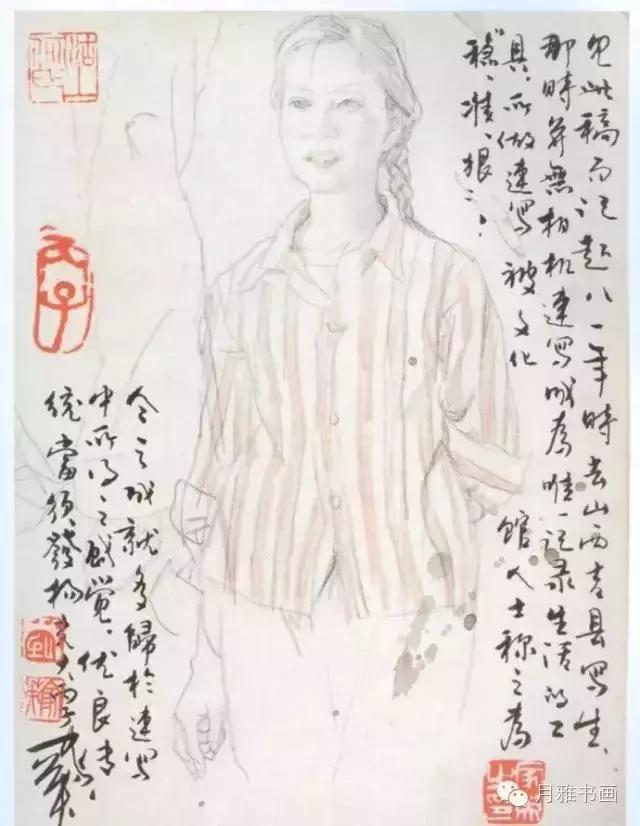 见此稿而记起八一年時去山西吉县写生、
那時并無相机速写成為唯一记录生活的工
具、所做速写 被文化
館人士称之為
穩、准、狠
今之成就多歸於速写
中所得之感觉、优良传
統當须發扬光大
月雅书画